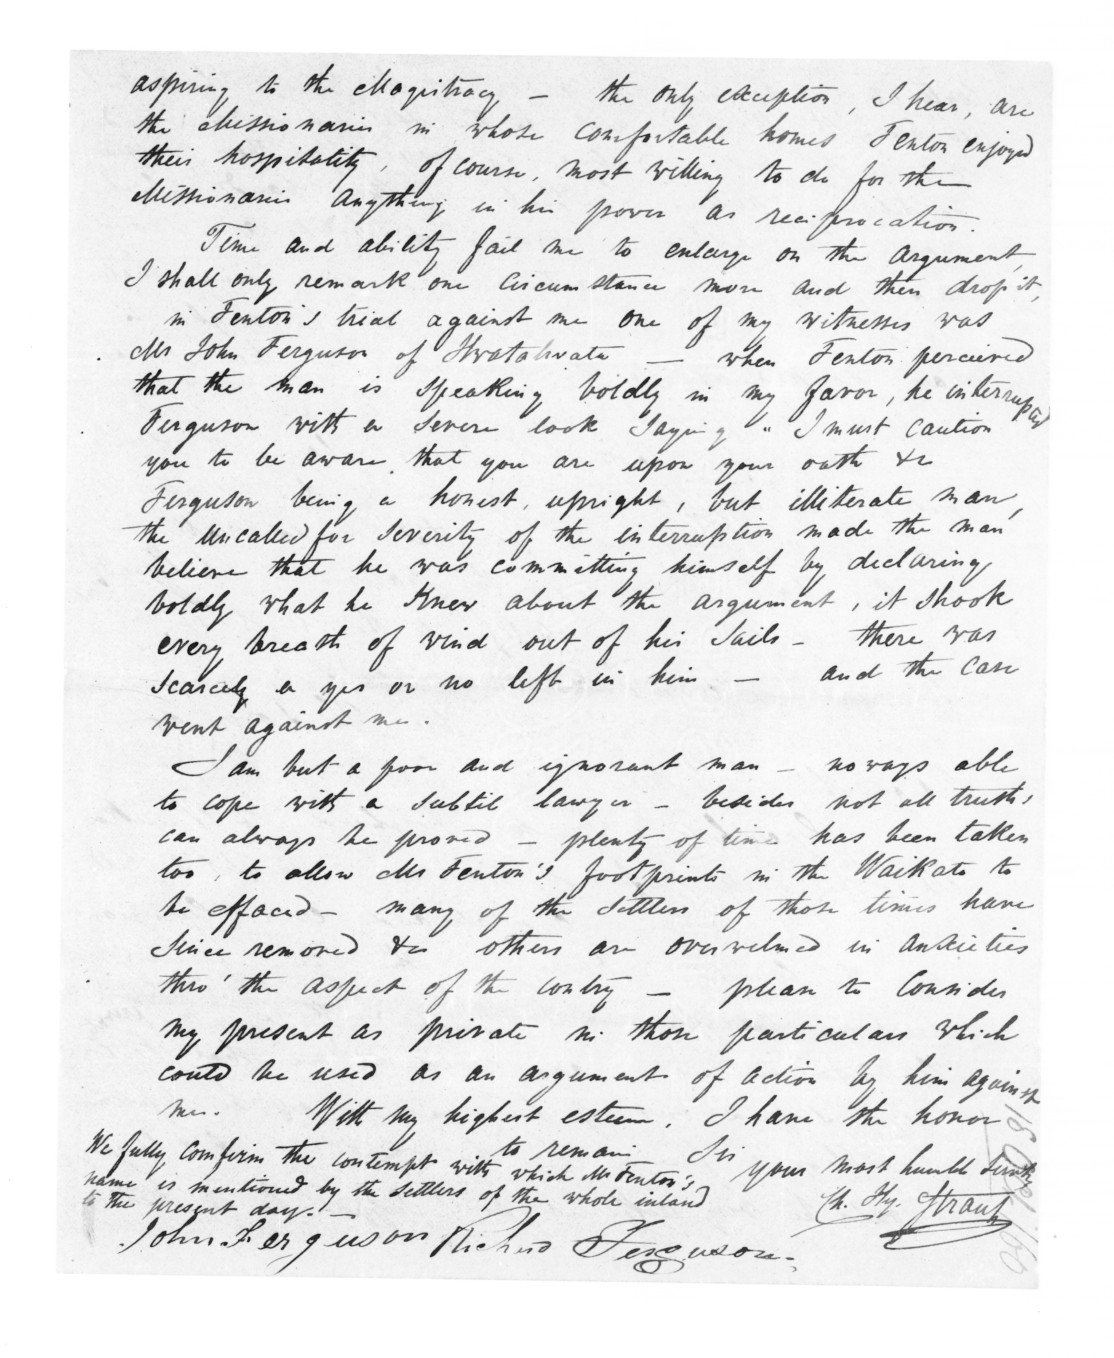 aspiring to the Magistracy — the only exception, I hear, are
the Missionaries in whose comfortable homes Fenton enjoyed
their hospitality, of course, most willing to do for the
Missionaries anything in his power as reciprocation.
Time and ability fail me to enlarge on the argument,
I shall only remark one circumstance more and then drop it,
in Fenton's trial against me one of my witnesses was
Mr John Ferguson of — when Fenton perceived
that the man is speaking boldly in my favor, he interrupted
Ferguson with a severe look saying "I must caution
you to be aware, that you are upon your oath &c
Ferguson being a honest, upright, but illiterate man,
the uncalled for severity of the interruption made the man
believe that he was committing himself by declaring
boldly what he knew about the argument, it shook
every breath of wind out of his sails — there was
scarcely a yes or no left in him — and the case
went against me.
I am but a poor and ignorant man — noways able
to cope with a subtil lawyer — besides not all truths
can always be proved — plenty of time has been taken
too, to allow Mr Fenton's footprints in the Waikato to
be effaced — many of the settlers of those times have
since removed &c others are overwelmed in anxieties
thro' the aspect of the contry — please to consider
my present as private in those particulars which
could be used as an argument of action by him against
me. With my highest esteem, I have the honor
to remain Sir
your most humble Servt
Ch. Hy. Strauss
We fully comfirm the contempt with which Mr Fenton's
name is mentioned by the settlers of the whole inland
to the present day. —
John Ferguson Richard Ferguson